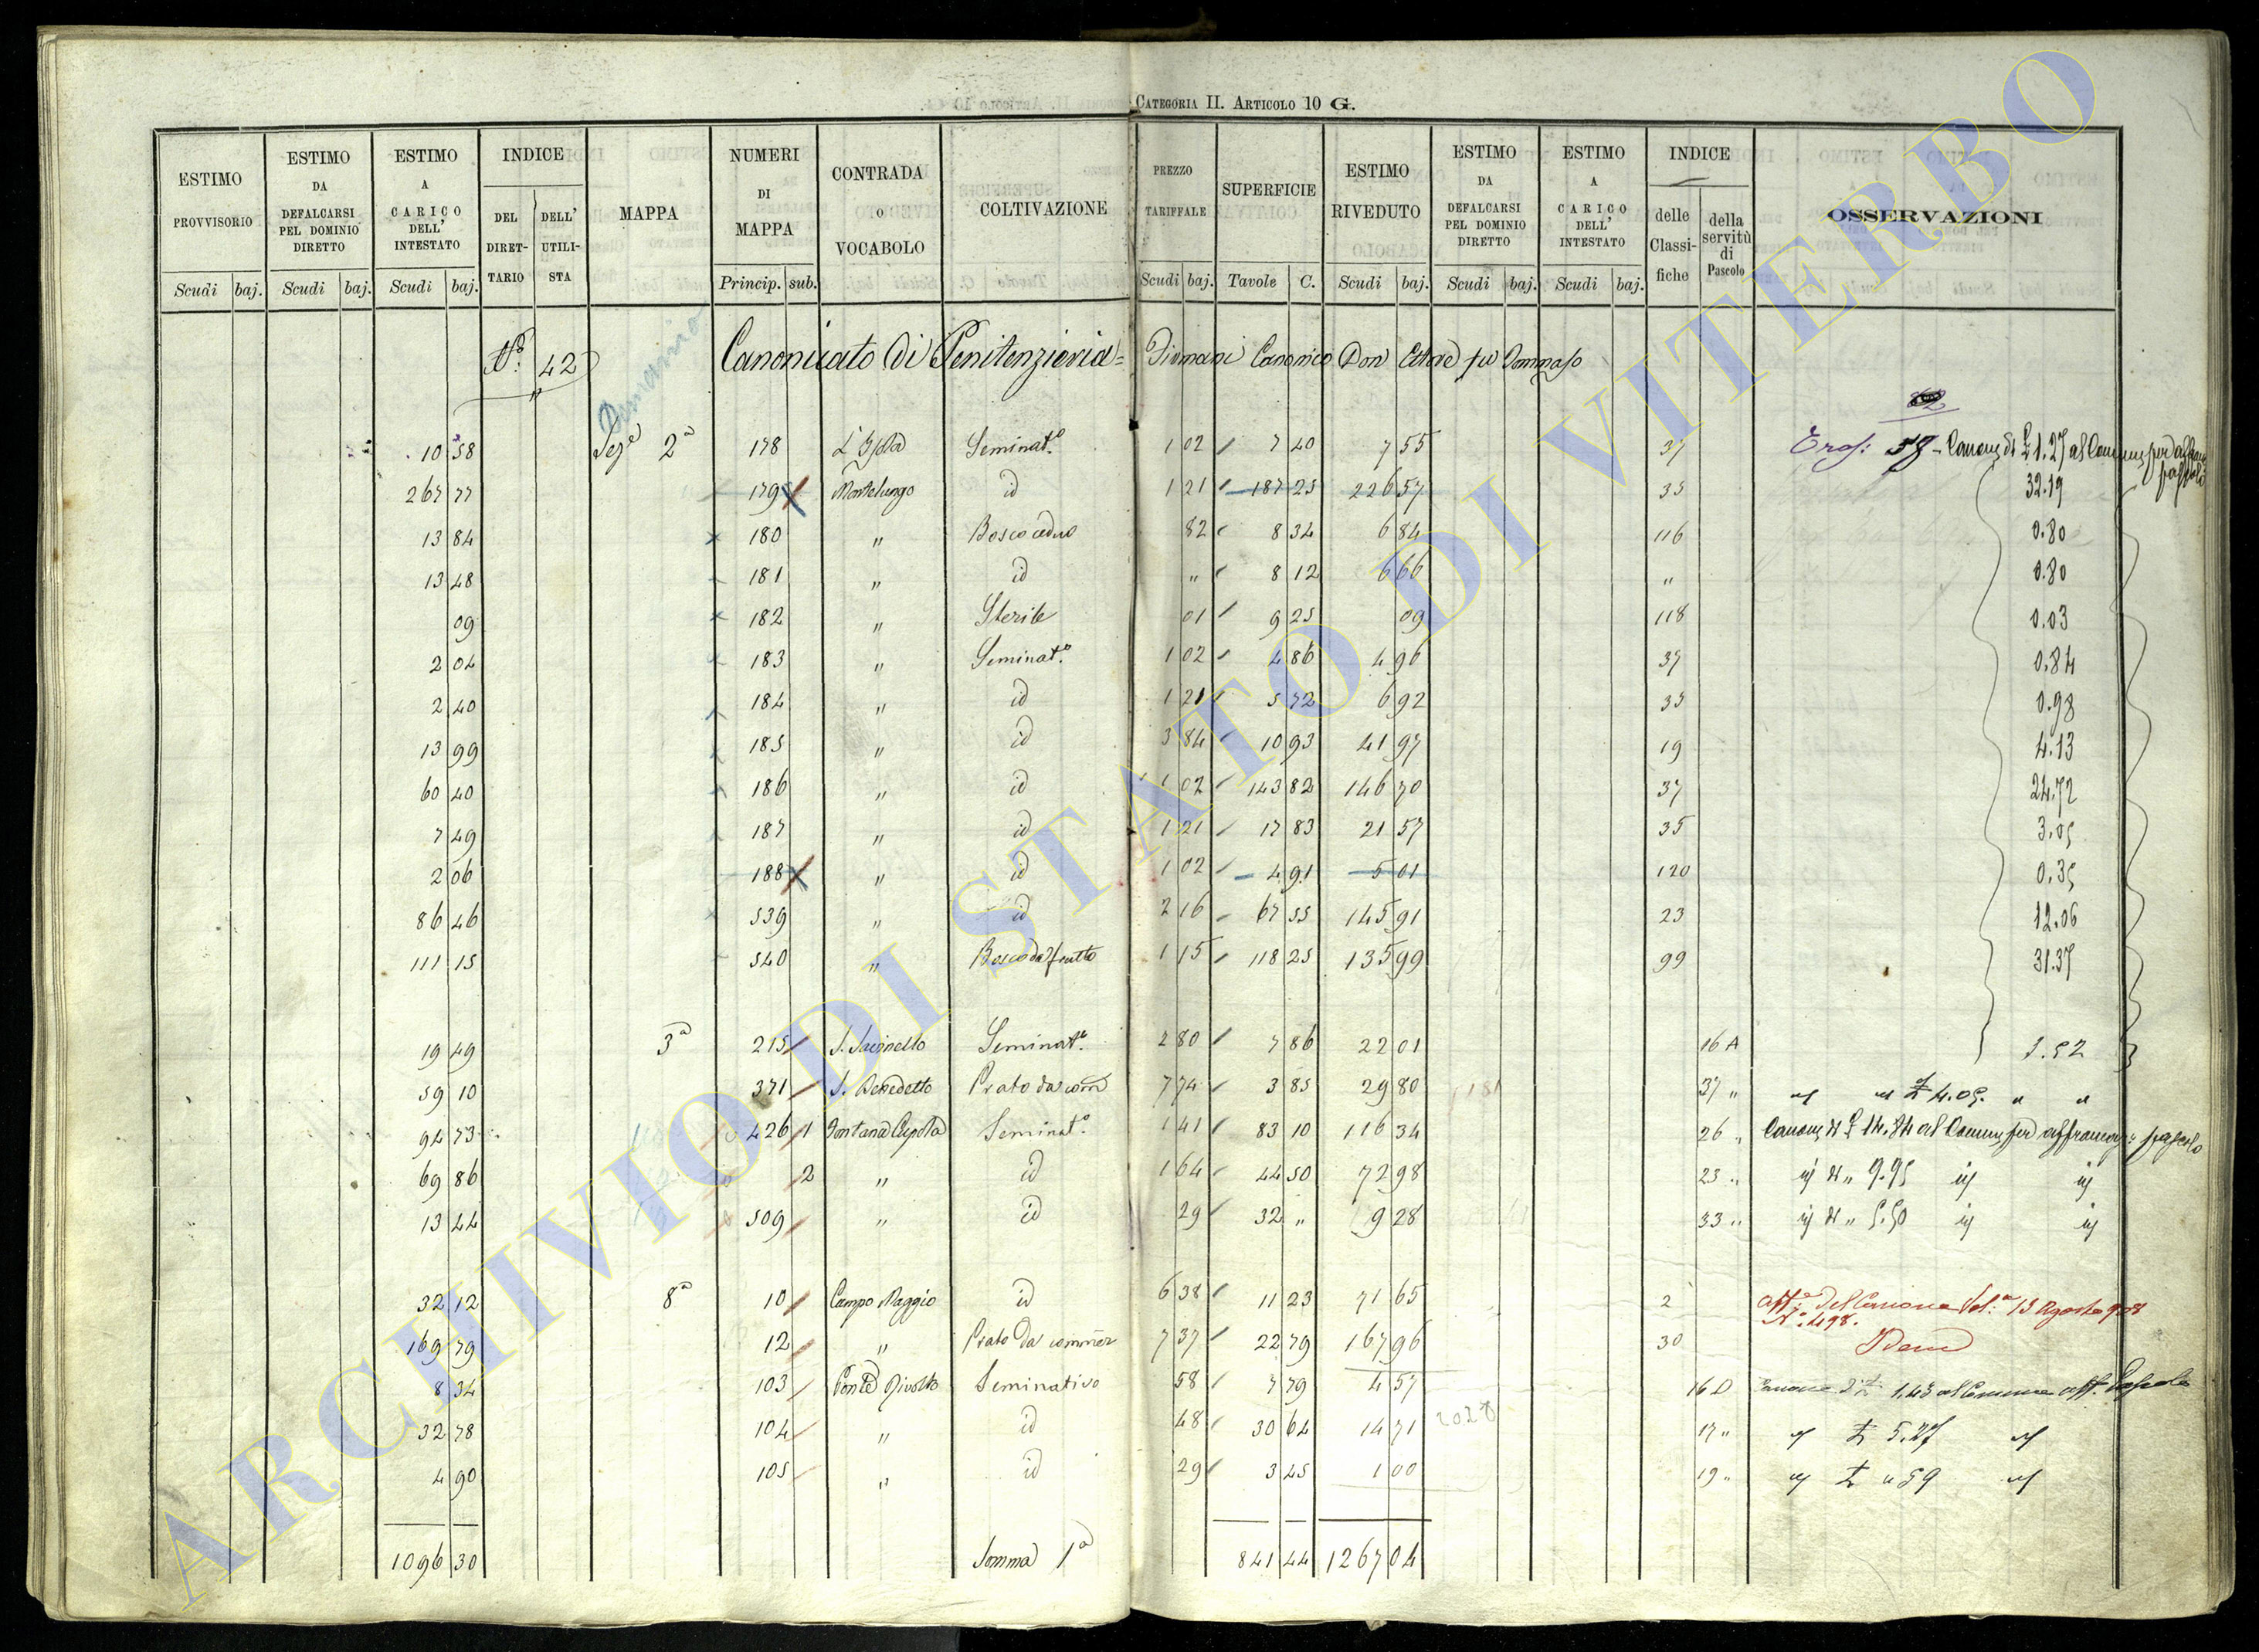 CATEGORIA II. ARTICOLO 10 G.
ESTIMO PROVVISORIO | ESTIMO DA DEFALCARSI PEL DOMINIO DIRETTO | ESTIMO A CARICO DELL' INTESTATO | INDICE | MAPPA | NUMERI DI MAPPA | CONTRADA O VOCABOLO | COLTIVAZIONE | PREZZO TARIFFALE | SUPERFICIE | ESTIMO RIVEDUTO | ESTIMO DA DEFALCARSI PEL DOMINIO DIRETTO | ESTIMO A CARICO DELL' INTESTATO | INDICE | OSSERVAZIONI
DEL DIRETTARIO | DELL' UTILISTA | delle Classifiche | della servitù di Pascolo
Scudi baj. Scudi baj. Scudi baj. Princip. sub. Scudi baj. Tavole C. Scudi baj. Scudi baj. Scudi baj.
N.° 42 Demanio Canonicato di Penitenzieria = Canonico Don fu Tommaso
10 58 Sez.e 2a 178 L'Isola Seminat.o 1 02 7 40 7 55 37 58 - di £ 1.27 al
267 77 179 Montelungo id 1 21 187 25 226 57 35 32.19
13 84 180 " Bosco ceduo 82 8 34 6 84 116 0.80
13 48 181 " id " 8 12 6 66 " 0.80
09 182 " Sterile 01 9 25 09 118 0.03
2 04 183 " Seminat.o 1 02 4 86 4 96 37 0.84
2 40 184 " id 1 21 5 72 6 92 35 0.98
13 99 185 " id 3 84 10 93 41 97 19 4.13
60 40 186 " id 1 02 143 82 146 70 37 24.72
7 49 187 " id 1 21 17 83 21 57 35 3.05
2 06 188 " id 1 02 4 91 5 01 120 0.35
86 46 539 " id 2 16 67 55 145 91 23 12.06
111 15 540 " Bosco da frutto 1 15 118 25 135 99 99 31.37
19 49 3a 215 Seminat.o 2 80 7 86 22 01 16 A 3.52
59 10 371 S. Benedetto Prato da 7 74 3 85 29 80 37 " £ 4.05. " "
94 73 426 1 Fontana Cupola Seminat.o 1 41 83 10 116 34 26 " di £ 14.84 al pascolo
69 86 2 " id 1 64 44 50 72 98 23 " id di " 9.95 id id
13 44 509 " id 29 32 " 9 28 33 " id di " 5.50 id id
32 12 8a 10 Campo Maggio id 6 38 11 23 71 65 2 del Canone Vol. 13 Agosto
N.° 498.
169 79 12 " Prato da 7 37 22 79 167 96 30 Idem
8 34 103 Seminativo 58 7 79 4 57 16 D Canone di £ 1.43 al Comune aff. Pascolo
32 78 104 " id 48 30 64 14 71 17 " £ 5.27
4 90 105 " id 29 3 45 1 00 19 " £ " 59
1096 30 Somma 1a 841 44 1267 04
ARCHIVIO DI STATO DI VITERBO